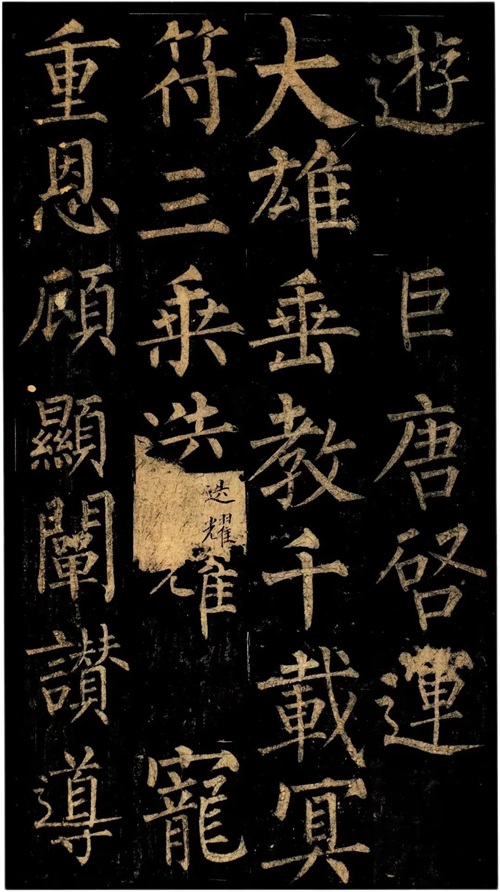 遊 巨唐啓運
大雄垂教千載冥
符三乘迭耀 寵
迭耀
重恩顧顯闡讚導